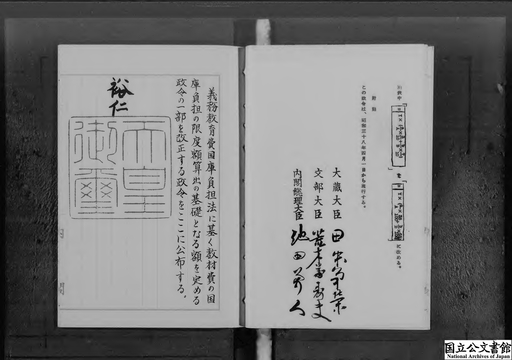 附則
この政令は、昭和三十八年四月一日から施行する。
大蔵大臣 田中角榮
文部大臣 荒木萬壽夫
内閣総理大臣 池田勇人
義務教育費国庫負担法に基く教材費の国
庫負担の限度額算出の基礎となる額を定める
政令の一部を改正する政令をここに公布する。
裕仁
天皇
御璽
国立公文書館
National Archives of Japan